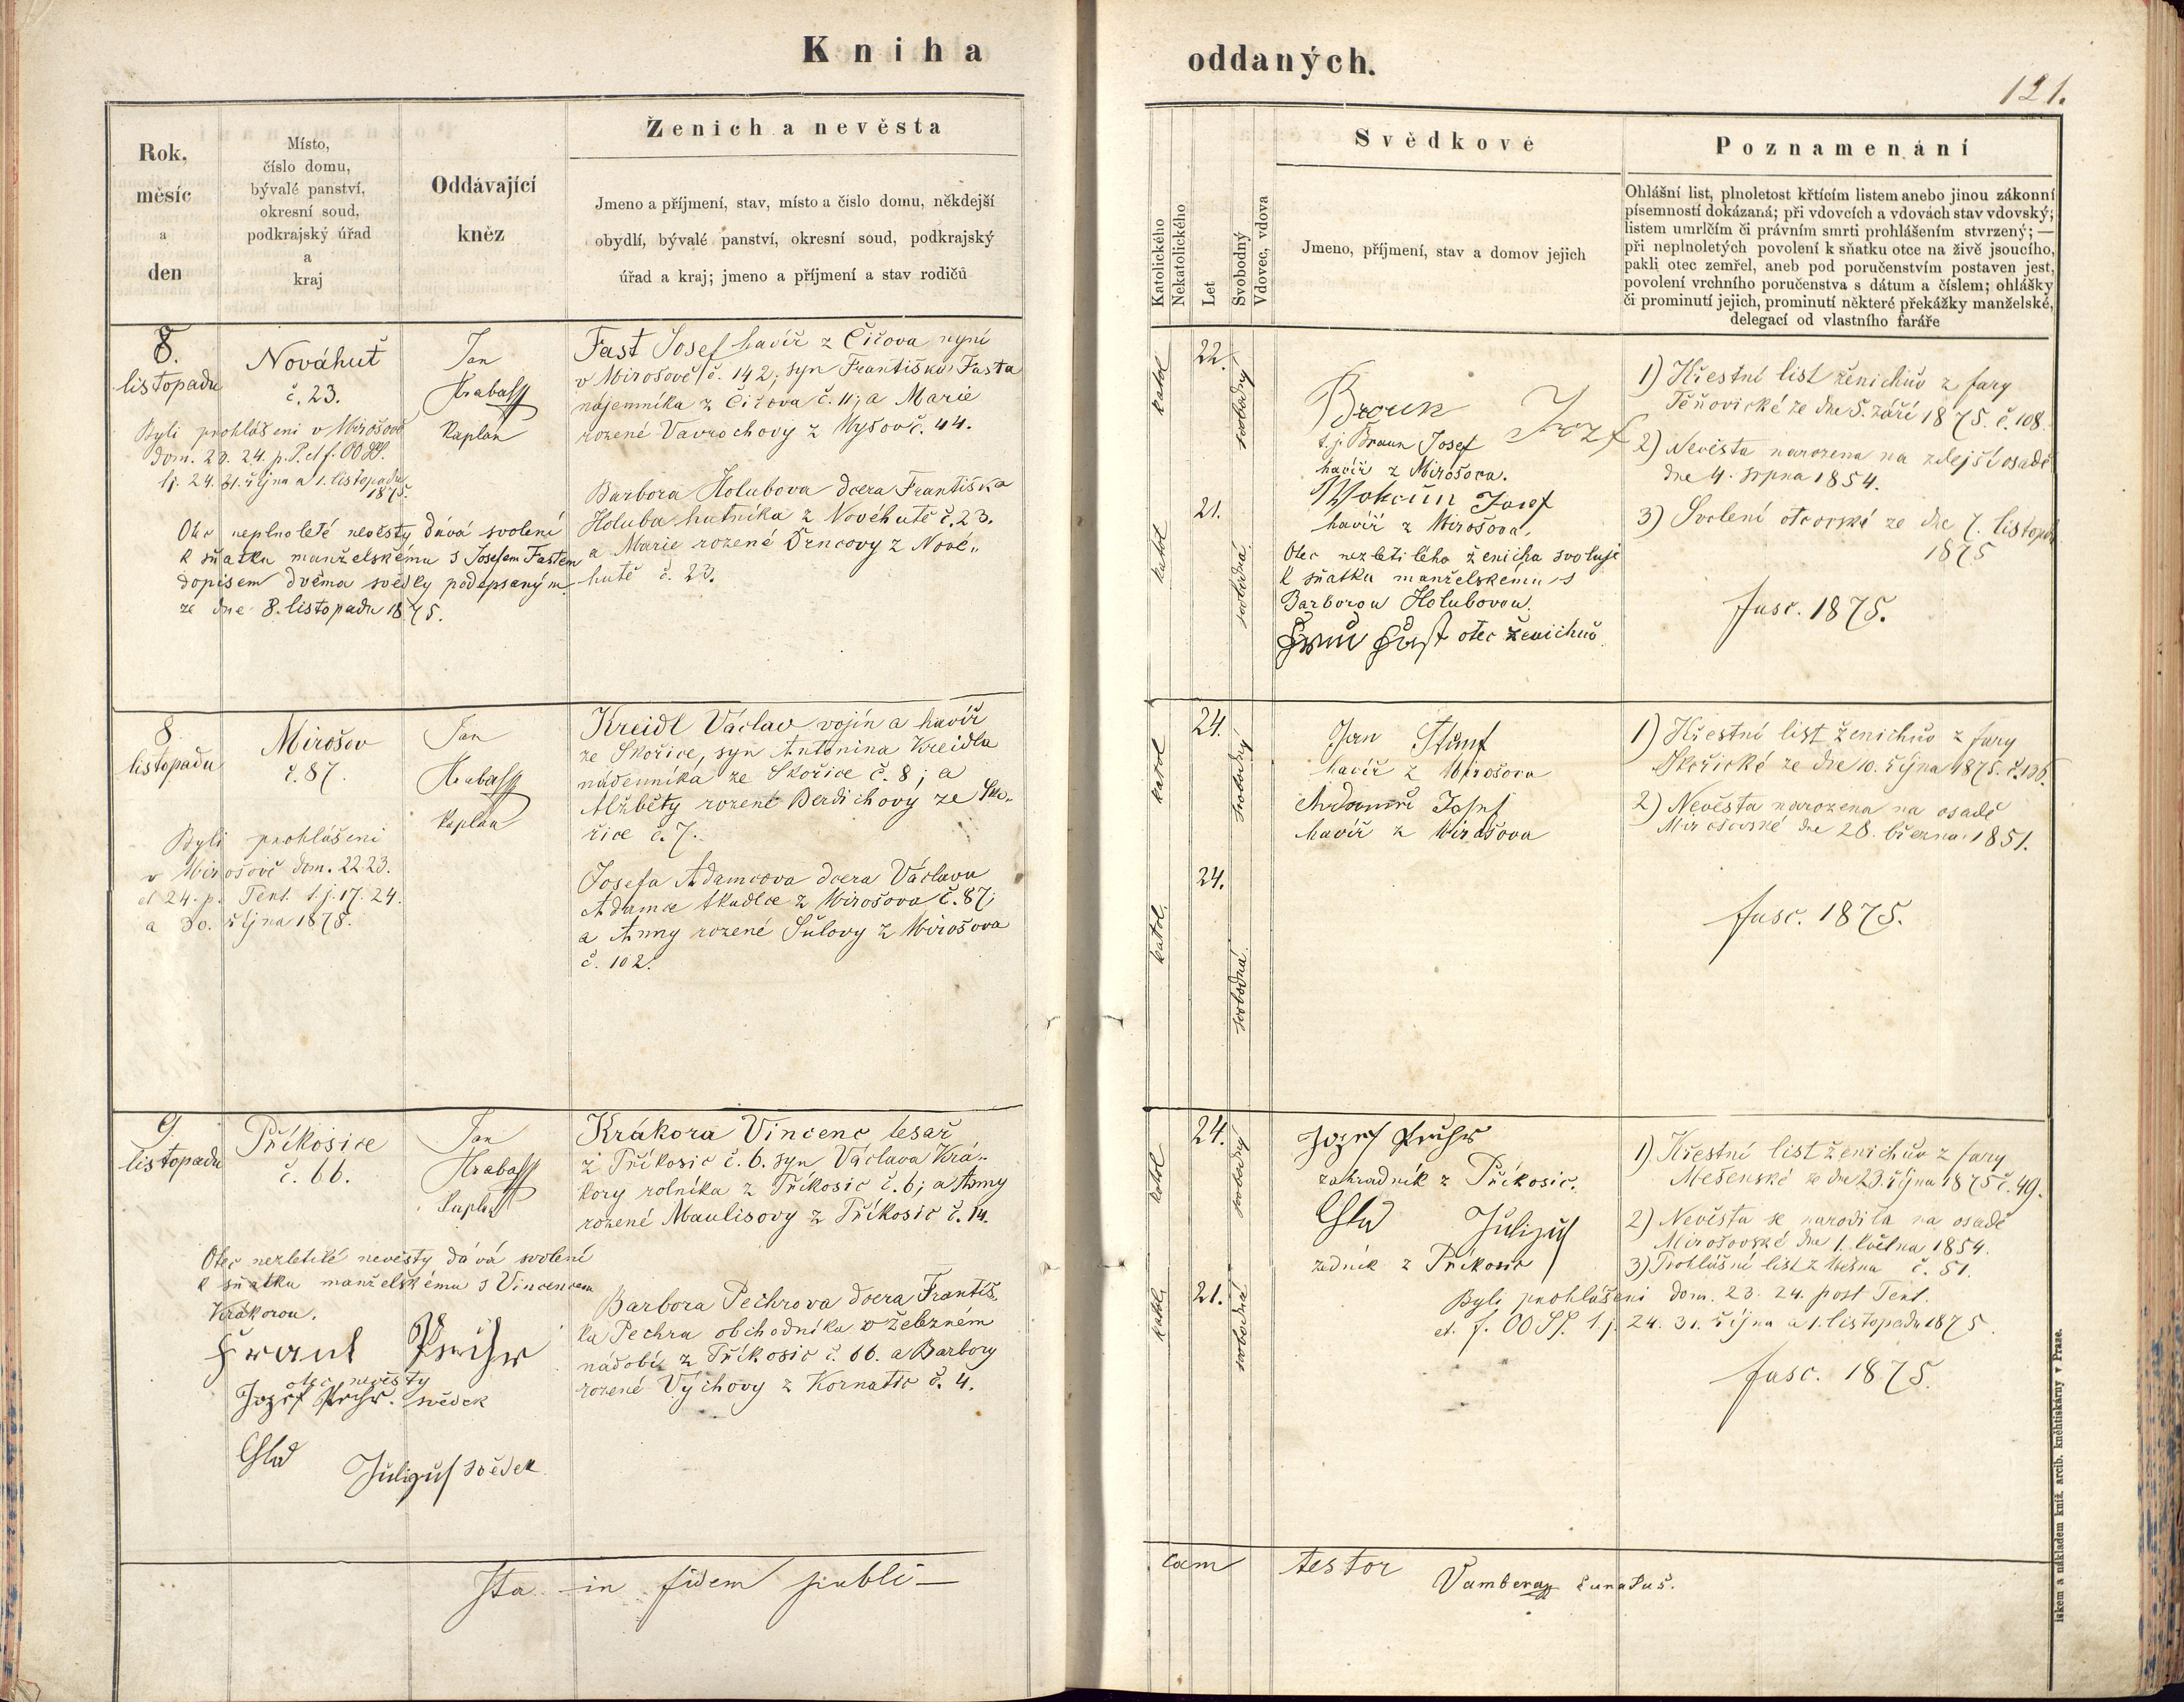 Kniha
oddaných.
121.
Rok,
měsíc
a
den
Místo,
číslo domu,
bývalé panství,
okresní soud,
podkrajský úřad
a
kraj
Oddávající
kněz
Ženich a nevěsta
Jmeno a příjmení, stav, místo a číslo domu, někdejší
obydlí, bývalé panství, okresní soud, podkrajský
úřad a kraj; jmeno a příjmení a stav rodičů
Katolického
Nekatolického
Let
Svobodný
Vdovec, vdova
Svědkové
Jmeno, příjmení, stav a domov jejich
Poznamenání
Ohlášní list, plnoletost křtícím listem anebo jinou zákonní
písemností dokázaná; při vdovcích a vdovách stav vdovský;
listem umrlčím či právním smrti prohlášením stvrzený; —
při neplnoletých povolení k sňatku otce na živě jsoucího,
pakli otec zemřel, aneb pod poručenstvím postaven jest,
povolení vrchního poručenstva s dátum a číslem; ohlášky
či prominutí jejich, prominutí některé překážky manželské,
delegací od vlastního faráře
8.
listopadu
Nováhuť
č. 23.
Byli prohlášeni v Mirošově
dom. 23. 24. p. P. et f. OO SS.
tj. 24. 31. října a 1. listopadu
1875.
Otec neplnoleté nevěsty dává svolení
k sňatku manželskému s Josefem Fastem
dopisem dvěma svědky podepsaným
ze dne 8. listopadu 1875.
Jan
Hraba
Kaplan
Fast Josef havíř z Čičova nyní
v Mirošově č. 142, syn Františka Fasta
nájemníka z Čičova č. 11; a Marie
rozené Vavrochovy z Mysov č. 44.
Barbora Holubova dcera Františka
Holuba hutníka z Novéhutě č. 23.
a Marie rozené Drncovy z Nové„
hutě č. 23.
katol
22.
svobodný
katol
21.
svobodná
Broun Jozef
t. j. Braun Josef
havíř z Mirošova.
Josef
havíř z Mirošova.
Otec nezletilého ženicha svoluje
k sňatku manželskému s
Barborou Holubovou.
otec ženichův
1) Křestní list ženichův z fary
Těňovické ze dne 5. září 1875. č. 108.
2) Nevěsta narozena na zdejší osadě
dne 4. srpna 1854.
3) Svolení otcovské ze dne 7. listopadu
1875
fasc. 1875.
8.
listopadu
Mirošov
č. 87.
Byli prohlášeni
v Mirošově dom. 22. 23.
et 24. p. Tent. t. j. 17. 24.
a 30. října 1875.
Jan
Hraba
Kaplan
Kreidl Václav vojín a havíř
ze Skořice, syn Antonína Kreidla
nádenníka ze Skořice č. 8; a
Alžběty rozené Berdichovy ze Sko„
řice č. 7.
Josefa Adamcova dcera Václava
Adamce tkadlce z Mirošova č. 87;
a Anny rozené Šulovy z Mirošova
č. 102.
katol
24.
svobodný
katol.
24.
svobodná
Jan
havíř z Mirošova
Josef
havíř z Mirošova
1) Křestní list ženichův z fary
Skořické ze dne 10. října 1875. č. 136.
2) Nevěsta narozena na osadě
Mirošovské dne 28. března 1851.
fasc. 1875.
9
listopadu
Příkosice
č. 66.
Otec nezletilé nevěsty dává svolení
k sňatku manželskému s Vincencem
Krákorou.
Frant
otec nevěsty
Jozef Pechr. svědek
Juligus svědek
Jan
Hraba
Kaplan
Krákora Vincenc, tesař
z Příkosic č. 6. syn Václava Krá„
kory rolníka z Příkosic č. 6; a Anny
rozené Maulisovy z Příkosic č. 14.
Barbora Pechrova dcera Františ„
ka Pechra obchodníka v železném
nádobí z Příkosic č. 66. a Barbory
rozené Výchovy z Kornatic č. 4.
katol
24.
svobodný
katol.
21.
svobodná
Jozef Pechr
zahradník z Příkosic.
Juligus
zedník z Příkosic
1) Křestní list ženichův z fary
Mešenské ze dne 23. října 1875 č. 49.
2) Nevěsta se narodila na osadě
Mirošovské dne 1. května 1854.
3) Prohlášní list z Mešna č. 51.
Byli prohlášeni dom. 23. 24. post Tent.
et. f. OO SS. t. j. 24. 31. října a 1. listopadu 1875.
fasc. 1875.
Ita in fidem publi—
cam testor